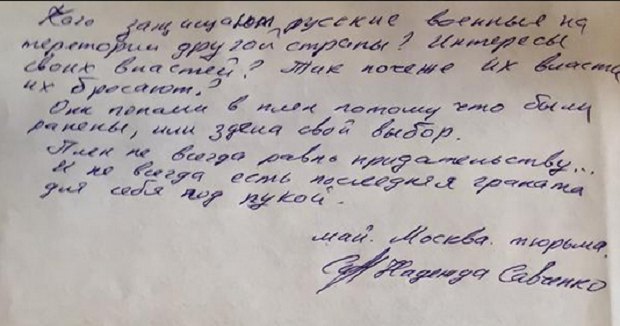 Кого защищают русские военные на
територии другой страны? Интересы
своих властей? Так почему их власти
их бросают?
Они попали в плен потому что были
ранены, или сдела свой выбор.
Плен не всегда равно придательству...
И не всегда есть последняя граната
для себя под рукой.
май. Москва. тюрьма.
Надежда Савченко